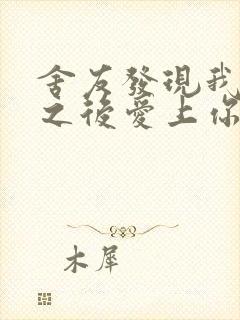 舍友發現我
之後愛上你
木犀